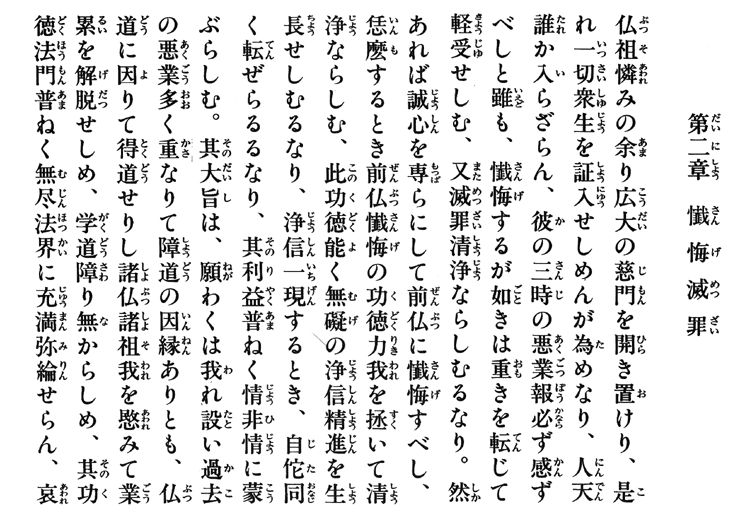 第二章 懺悔滅罪
仏祖憐みの余り広大の慈門を開き置けり、是
れ一切衆生を証入せしめんが為めなり、人天
誰か入らざらん、彼の三時の悪業報必ず感ず
べしと雖も、懺悔するが如きは重きを転じて
軽受せしむ、又滅罪清浄ならしむるなり。然
あれば誠心を専らにして前仏に懺悔すべし、
恁麼するとき前仏懺悔の功徳力我を拯いて清
浄ならしむ、此功徳能く無礙の浄信精進を生
長せしむるなり、浄信一現するとき、自佗同
く転ぜらるるなり、其利益普ねく情非情に蒙
ぶらしむ。其大旨は、願わくは我れ設い過去
の悪業多く重なりて障道の因縁ありとも、仏
道に因りて得道せりし諸仏諸祖我を愍みて業
累を解脱せしめ、学道障り無からしめ、其功
徳法門普ねく無尽法界に充満弥綸せらん、哀